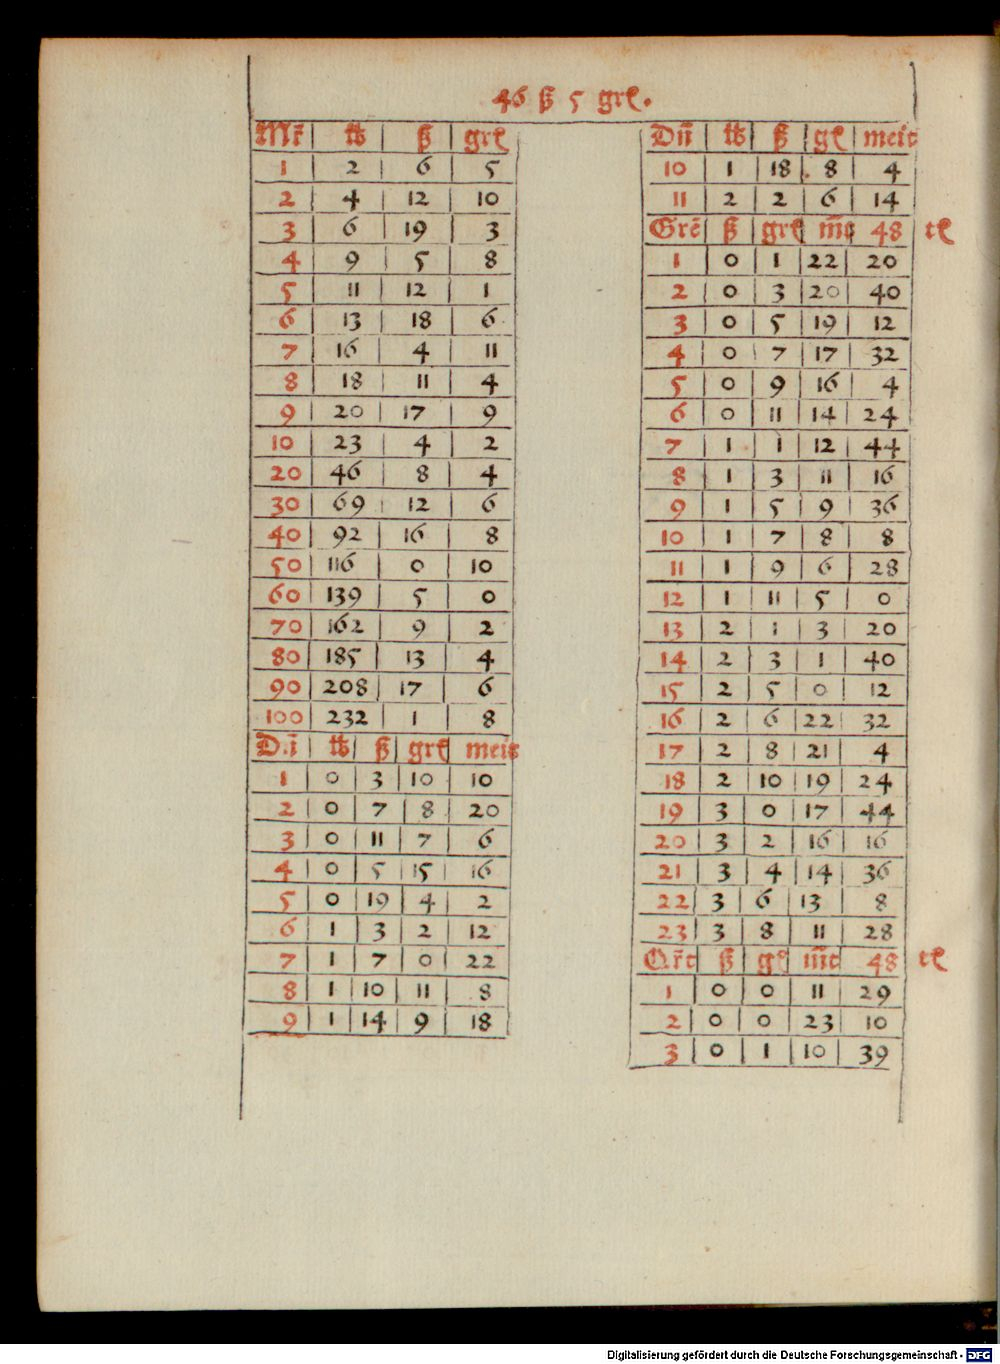 46 ß 5 grꝭ.
Mr̄ ℔ ß grꝭ
1 2 6 5
2 4 12 10
3 6 19 3
4 9 5 8
5 11 12 1
6 13 18 6
7 16 4 11
8 18 11 4
9 20 17 9
10 23 4 2
20 46 8 4
30 69 12 6
40 92 16 8
50 116 0 10
60 139 5 0
70 162 9 2
80 185 13 4
90 208 17 6
100 232 1 8
Dn̄ ℔ ß grꝭ meit
1 0 3 10 10
2 0 7 8 20
3 0 11 7 6
4 0 5 15 16
5 0 19 4 2
6 1 3 2 12
7 1 7 0 22
8 1 10 11 8
9 1 14 9 18
Dn̄ ℔ ß gꝭ meit
10 1 18 8 4
11 2 2 6 14
Grē ß grꝭ m̄t 48 tꝭ
1 0 1 22 20
2 0 3 20 40
3 0 5 19 12
4 0 7 17 32
5 0 9 16 4
6 0 11 14 24
7 1 1 12 44
8 1 3 11 16
9 1 5 9 36
10 1 7 8 8
11 1 9 6 28
12 1 11 5 0
13 2 1 3 20
14 2 3 1 40
15 2 5 0 12
16 2 6 22 32
17 2 8 21 4
18 2 10 19 24
19 3 0 17 44
20 3 2 16 16
21 3 4 14 36
22 3 6 13 8
23 3 8 11 28
Qr̄t ß gꝭ m̄t 48 tꝭ
1 0 0 11 29
2 0 0 23 10
3 0 1 10 39
Digitalisierung gefördert durch die Deutsche Forschungsgemeinschaft - DFG